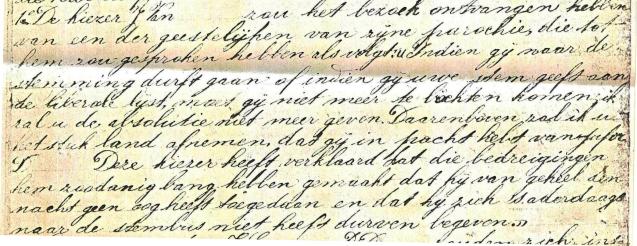 De kiezer J. Van zou het bezoek ontvangen hebben
van een der geestelijken van zijne parochie, die tot
hem zou gesproken hebben als volgt: "Indien gij naar de
stemming durft gaan of indien gij uwe stem geeft aan
de liberale lyst, moet gij niet meer te biechten komen; ik
zal u de absolutie niet meer geven. Daarenboven zal ik u
het stuk land afnemen, dat gij in pacht hebt van
D. Deze kiezer heeft verklaard dat die bedreigingen
hem zoodanig bang hebben gemaakt dat hij van geheel den
nacht geen oog heeft toegedaan en dat hij zich 's anderdaags
naar de stembus niet heeft durven begeven."